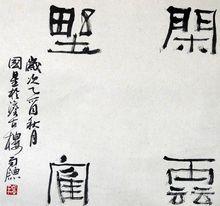 閑雲
野寉
歲次乙酉秋月
國星於
古樓南